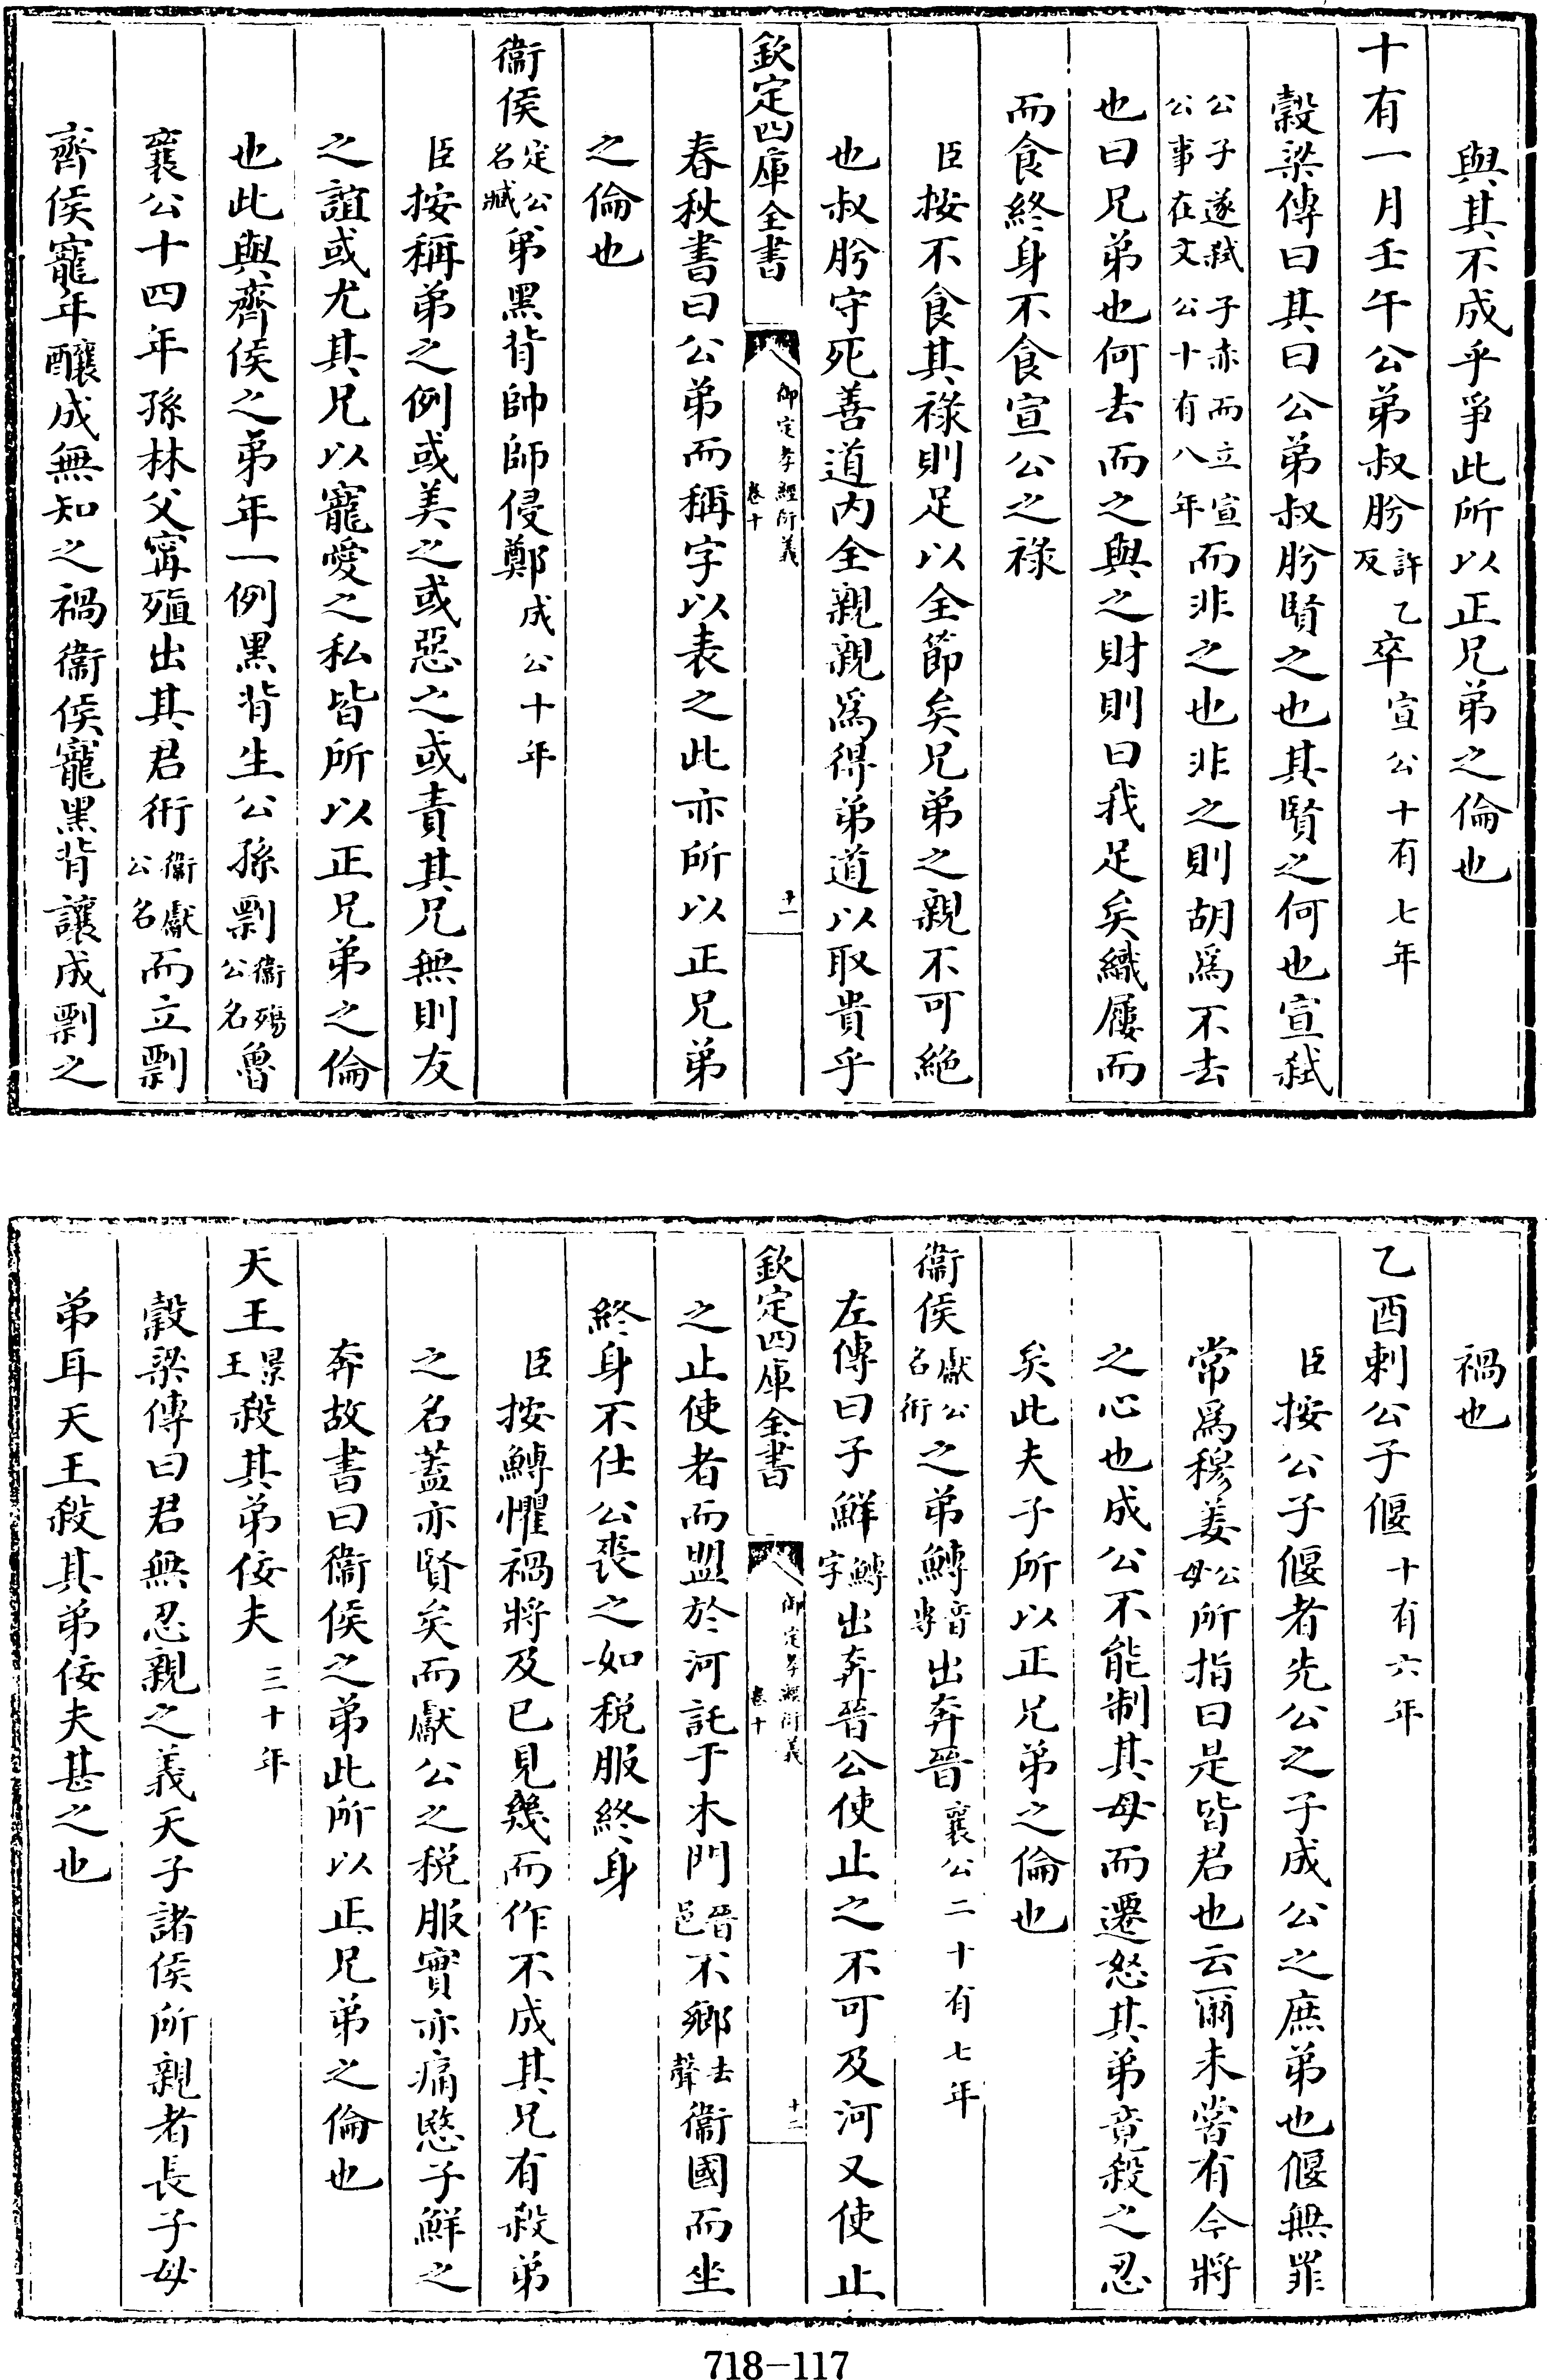 與其不成乎爭此所以正兄弟之倫也
十有一月壬午公弟叔肸許乙反卒宣公十有七年
穀梁傳曰其曰公弟叔肸賢之也其賢之何也宣弑
公子遂弑子赤而立宣公事在文公十有八年而非之也非之則胡為不去
也曰兄弟也何去而之與之財則曰我足矣織屨而
而食終身不食宣公之祿
臣按不食其祿則足以全節矣兄弟之親不可絶
也叔肸守死善道内全親親為得弟道以取貴乎
欽定四庫全書 御定孝經衍義 卷十 十一
春秋書曰公弟而稱字以表之此亦所以正兄弟
之倫也
衞侯定公名臧弟黑背帥師侵鄭成公十年
臣按稱弟之例或美之或惡之或責其兄無則友
之誼或尤其兄以寵愛之私皆所以正兄弟之倫
也此與齊侯之弟年一例黑背生公孫剽衞殤公名魯
襄公十四年孫林父甯殖出其君衎衞獻公名而立剽
齊侯寵年釀成無知之禍衞侯寵黑背讓成剽之
禍也
乙酉刺公子偃十有六年
臣按公子偃者先公之子成公之庶弟也偃無罪
常為穆姜公母所指曰是皆君也云爾未嘗有今將
之心也成公不能制其母而遷怒其弟竟殺之忍
矣此夫子所以正兄弟之倫也
衞侯獻公名衎之弟鱄音專出奔晉襄公二十有七年
左傳曰子鮮鱄字出奔晉公使止之不可及河又使止
欽定四庫全書 御定孝經衍義 卷十 十二
之止使者而盟於河託于木門晉邑不鄉去聲衞國而坐
終身不仕公喪之如稅服終身
臣按鱄懼禍將及已見幾而作不成其兄有殺弟
之名蓋亦賢矣而獻公之稅服實亦痛愍子鮮之
奔故書曰衞侯之弟此所以正兄弟之倫也
天王景王殺其弟佞夫三十年
穀梁傳曰君無忍親之義天子諸侯所親者長子母
弟耳天王殺其弟佞夫甚之也
718-117